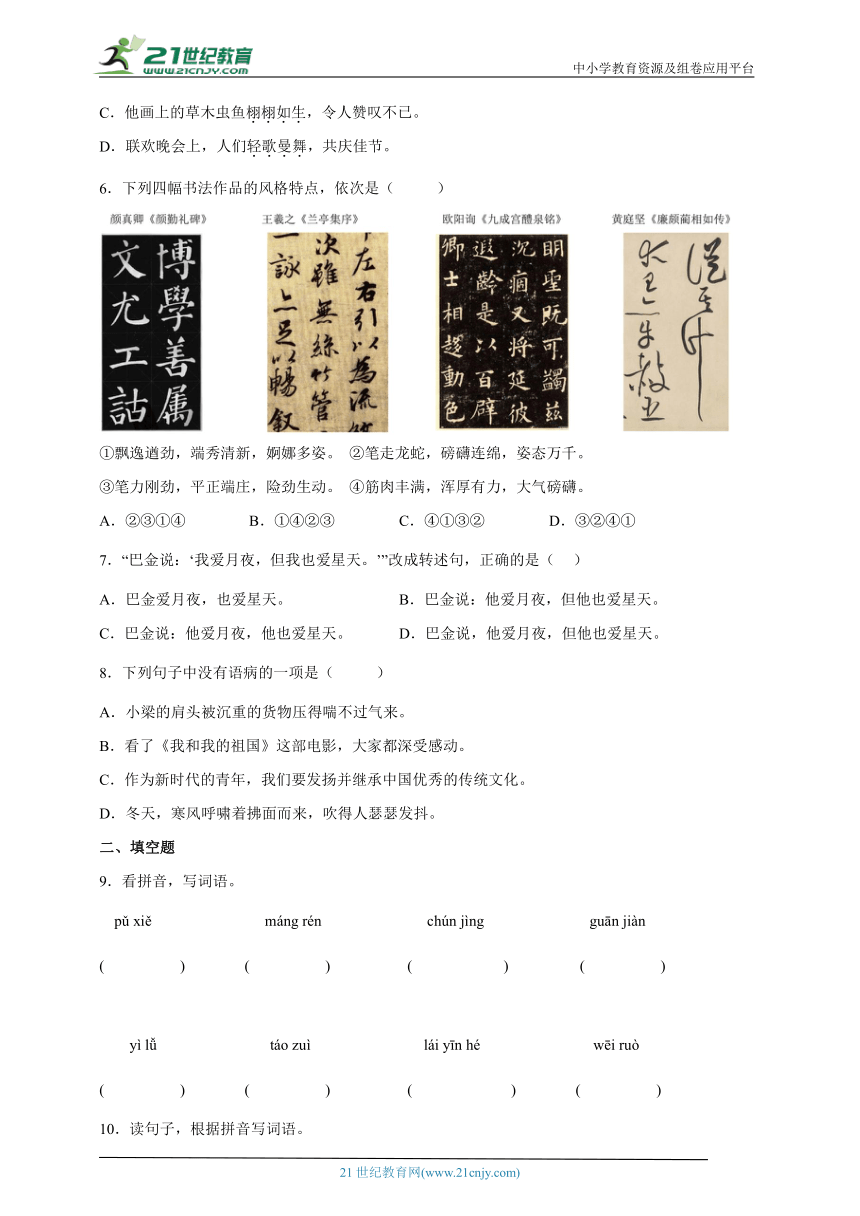 21世纪教育
WWW.21CNJY.COM
中小学教育资源及组卷应用平台
C．他画上的草木虫鱼栩栩如生，令人赞叹不已。
D．联欢晚会上，人们轻歌曼舞，共庆佳节。
6．下列四幅书法作品的风格特点，依次是（ ）
颜真卿《颜勤礼碑》 王羲之《兰亭集序》 欧阳询《九成宫醴泉铭》 黄庭坚《廉颇蔺相如传》
博學善属
文尤工詁
左右引以為流
次雖無絲竹管
詠亦足以暢叙
明聖既可蠲兹
沉痼又将延彼
遐齡是以百辟
卿士相趍動色
①飘逸遒劲，端秀清新，婀娜多姿。 ②笔走龙蛇，磅礴连绵，姿态万千。
③笔力刚劲，平正端庄，险劲生动。 ④筋肉丰满，浑厚有力，大气磅礴。
A．②③①④ B．①④②③ C．④①③② D．③②④①
7．“巴金说：‘我爱月夜，但我也爱星天。’”改成转述句，正确的是（ ）
A．巴金爱月夜，也爱星天。 B．巴金说：他爱月夜，但他也爱星天。
C．巴金说：他爱月夜，他也爱星天。 D．巴金说，他爱月夜，但他也爱星天。
8．下列句子中没有语病的一项是（ ）
A．小梁的肩头被沉重的货物压得喘不过气来。
B．看了《我和我的祖国》这部电影，大家都深受感动。
C．作为新时代的青年，我们要发扬并继承中国优秀的传统文化。
D．冬天，寒风呼啸着拂面而来，吹得人瑟瑟发抖。
二、填空题
9．看拼音，写词语。
pǔ xiě máng rén chún jìng guān jiàn
( ) ( ) ( ) ( )
yì lǚ táo zuì lái yīn hé wēi ruò
( ) ( ) ( ) ( )
10．读句子，根据拼音写词语。
21世纪教育网(www.21cnjy.com)